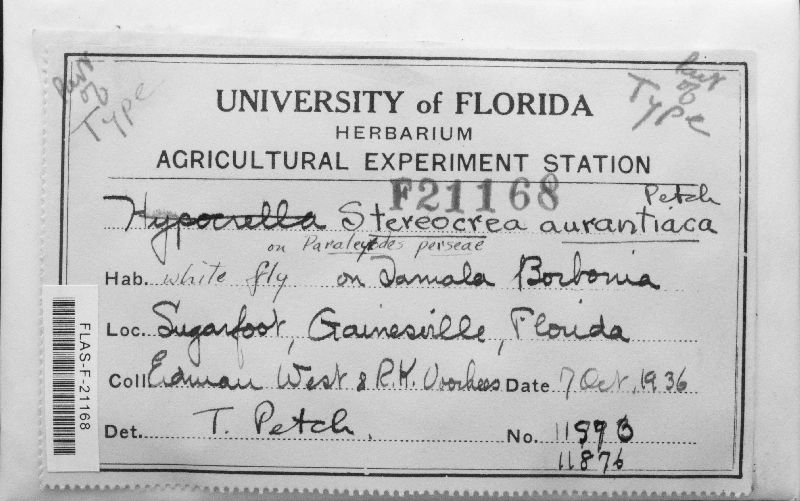 Part of Type
Part of Type
UNIVERSITY of FLORIDA
HERBARIUM
AGRICULTURAL EXPERIMENT STATION
F21168
Petch
Hypocrella Stereocrea aurantiaca
on Paraleyrodes perseae
Hab. white fly on Tamala Borbonia
Loc. Sugarfoot, Gainesville, Florida
Coll. Erdman West & R.K. Voorhees Date 7 Oct. 1936
Det. T. Petch. No. 11876
11876
FLAS-F-21168